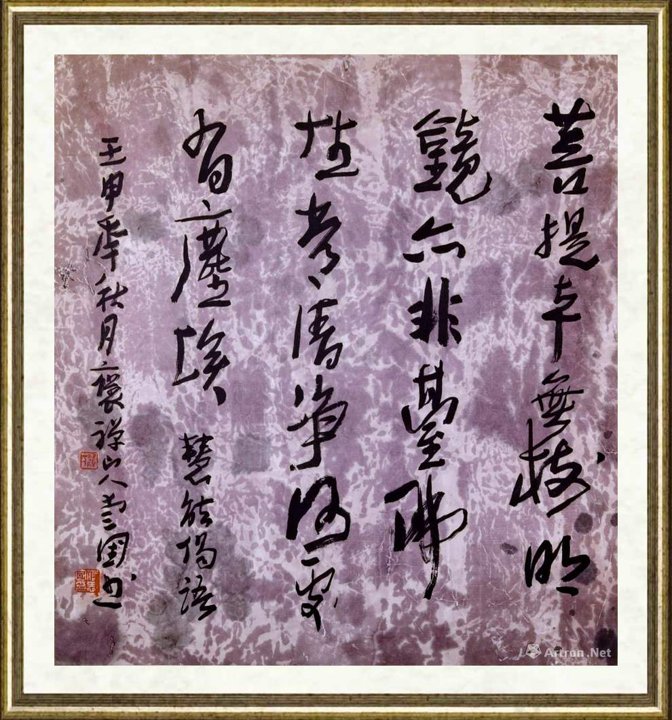 菩提本無樹明
鏡亦非臺佛
性常清淨何處
有塵埃 慧能偈語
壬申年秋月褒禅山人书
Artron.Net